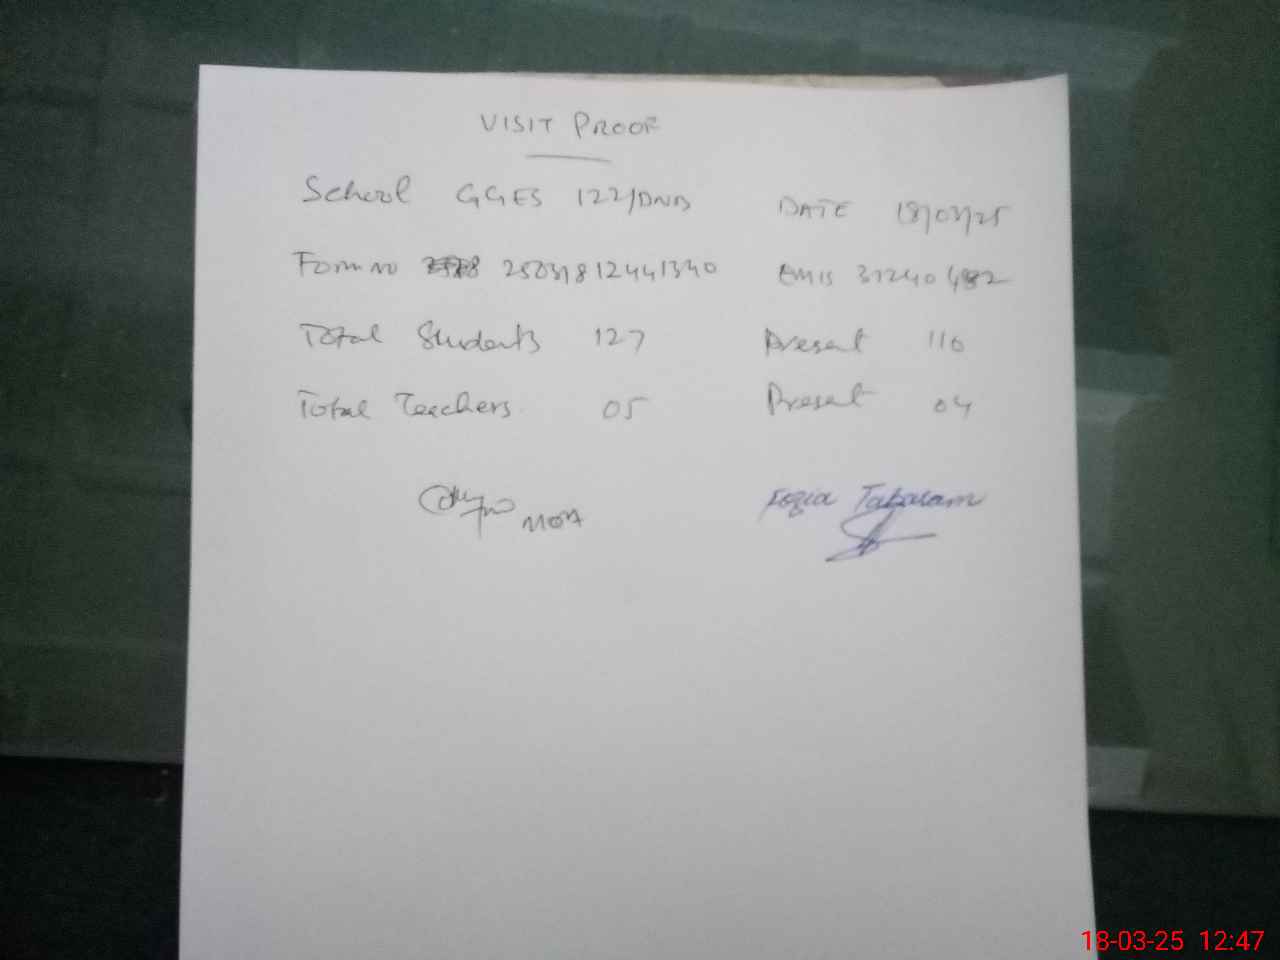 VISIT PROOF
School GGES 122/DNB DATE 18/03/25
Form no 25031812441340 EMIS 31240482
Total Students 127 Present 110
Total Teachers 05 Present 04
MEA Fozia Tabasam
18-03-25 12:47